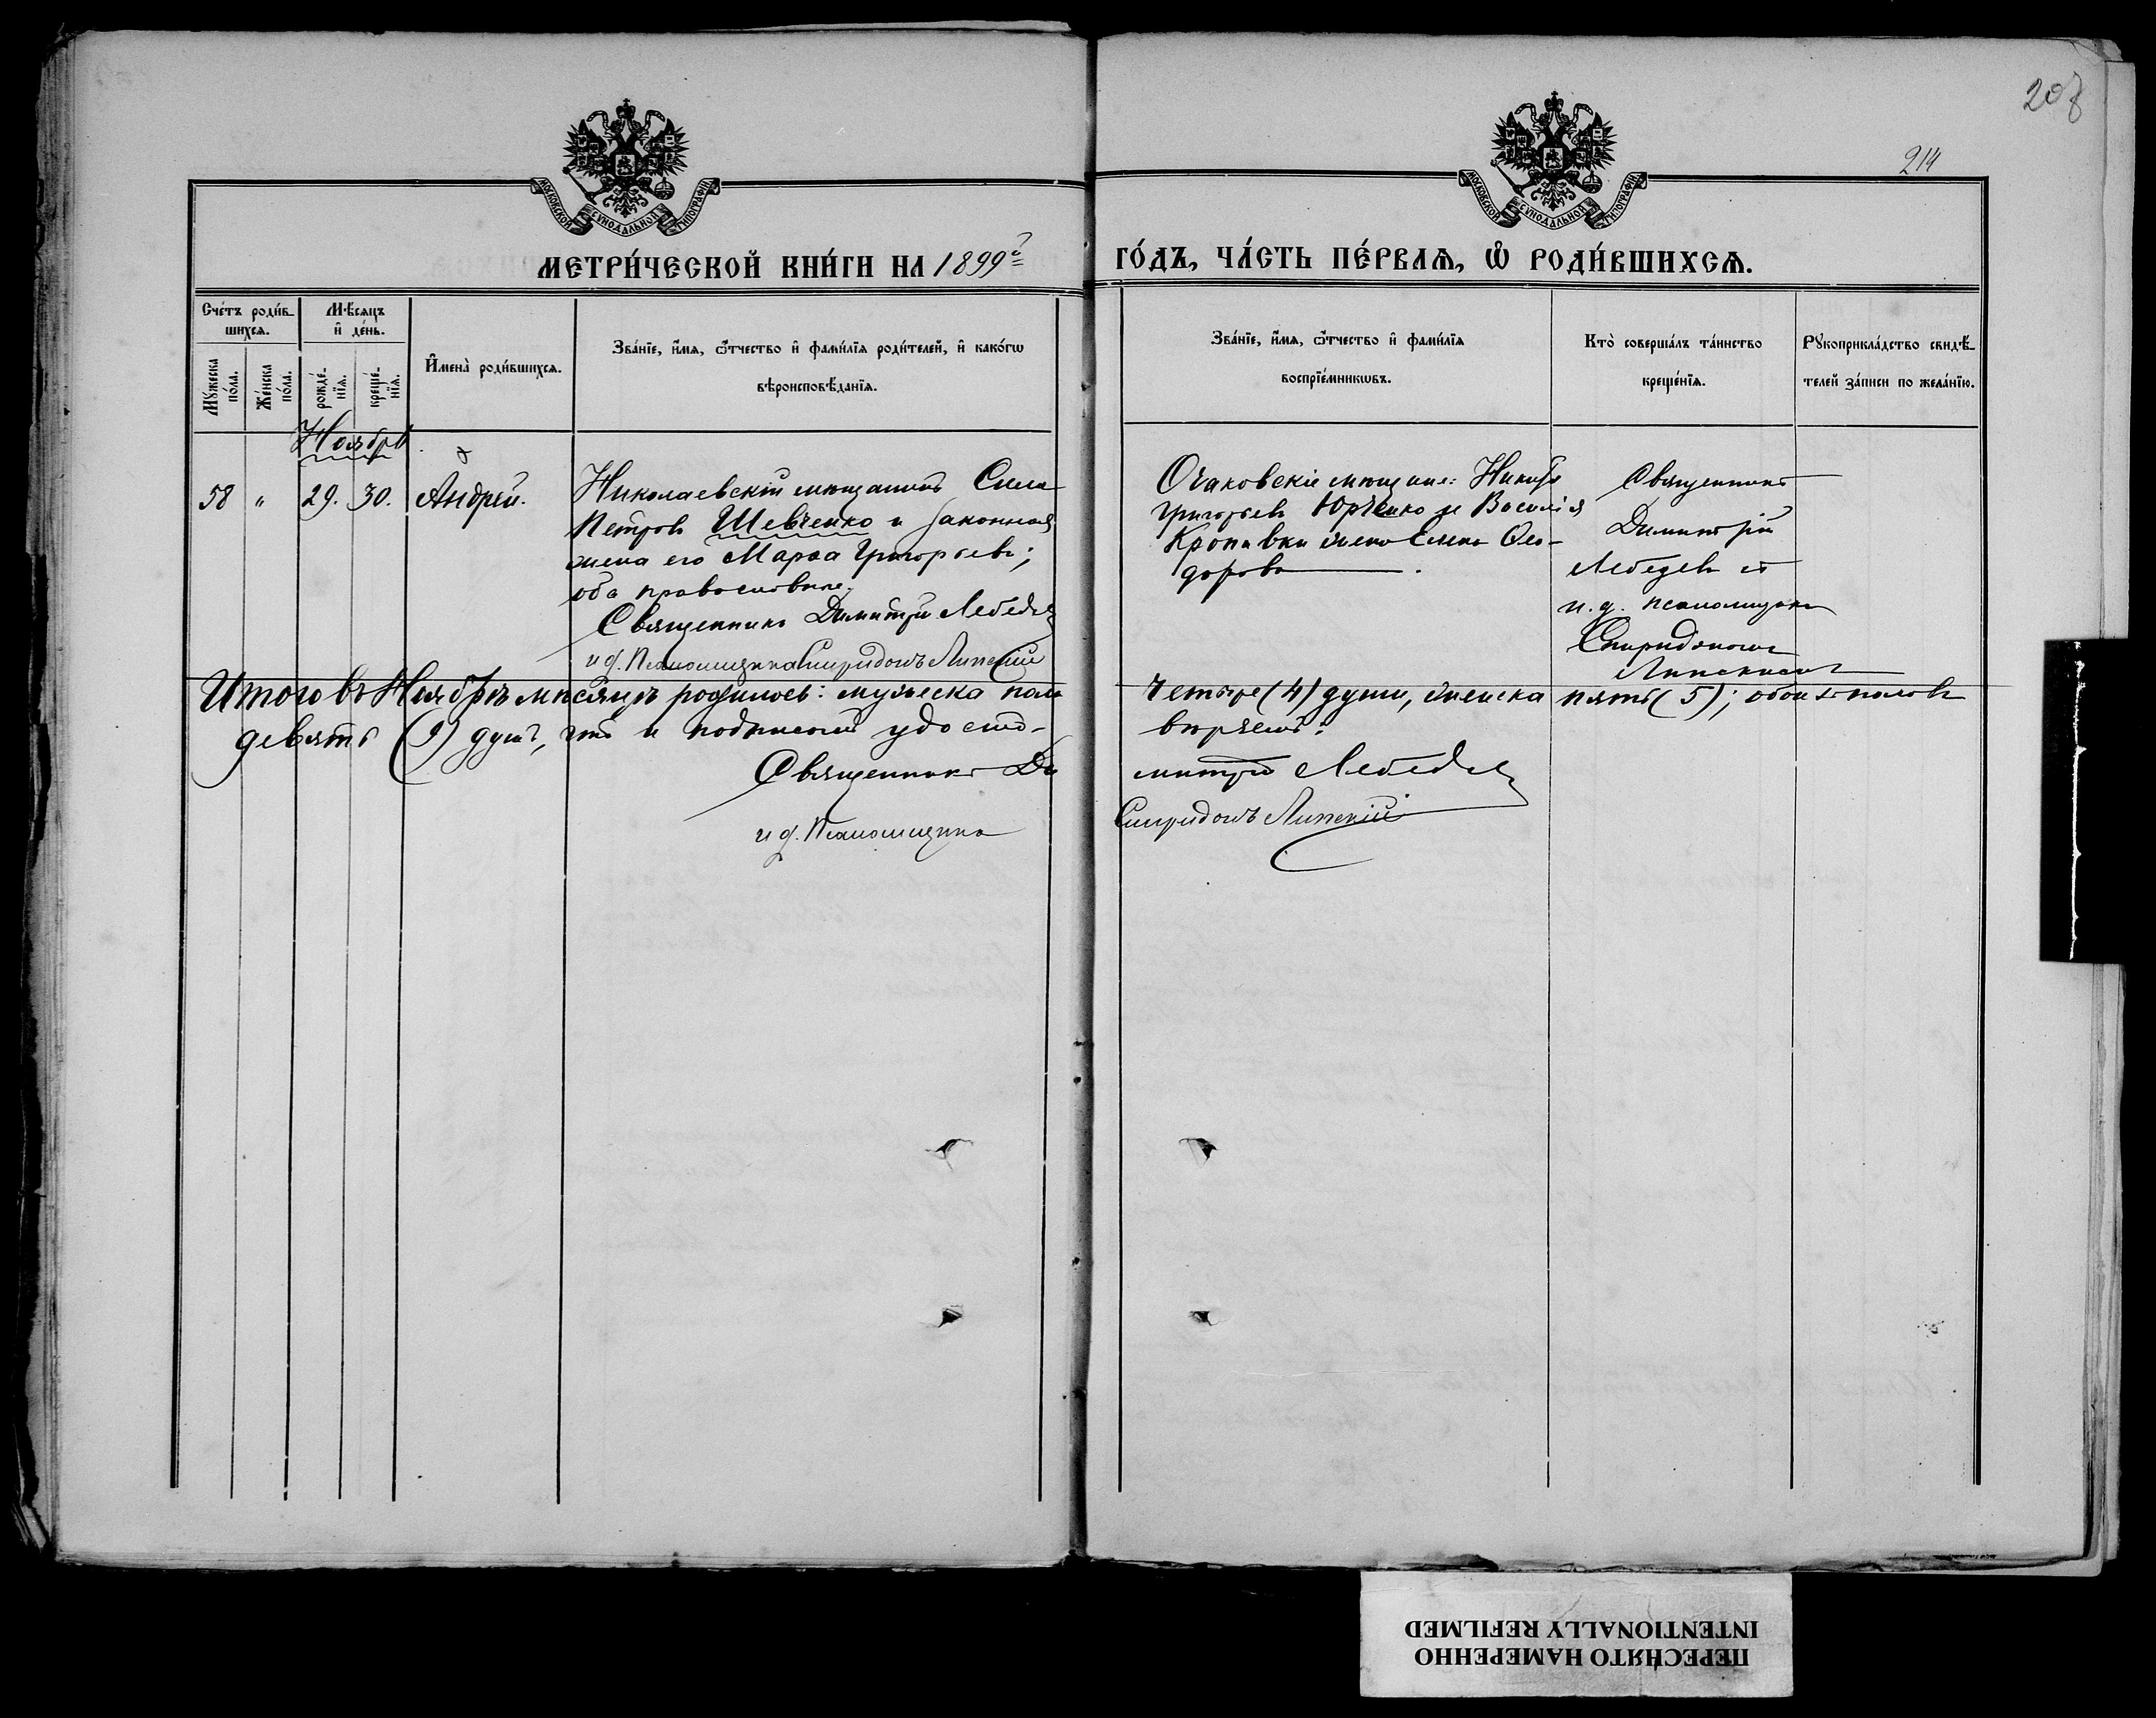 208
214
МОСКОВСКОЙ СѴНОДАЛЬНОЙ ТИПОГРАФІИ
МОСКОВСКОЙ СѴНОДАЛЬНОЙ ТИПОГРАФІИ
МЕТРИ́ЧЕСКОЙ КНИ́ГИ НА 1899й
ГО́ДЪ, ЧА́СТЬ ПЕ́РВАѦ, Ѡ҆ РОДИ́ВШИХСѦ.
Сче́тъ роди́в-
шихсѧ.
Мѣ́сѧцъ
и҆ де́нь.
Мꙋ́жеска по́ла.
Же́нска по́ла.
рожде́-
нїѧ.
креще́-
нїѧ.
И҆мена̀ роди́вшихсѧ.
Зва́нїе, и҆́мѧ, ѻ҆́тчество и҆ фами́лїѧ роди́телей, и҆ како́гѡ
вѣроисповѣ́данїѧ.
Зва́нїе, и҆́мѧ, ѻ҆́тчество и҆ фами́лїѧ
воспрїе́мникѡвъ.
Кто̀ соверша́лъ та́инство
креще́нїѧ.
Рꙋкоприкла́дство свидѣ́-
телей за́писи по жела́нїю.
Ноябрь
58 " 29. 30. Андрей.
Николаевскій мѣщанинъ Сила
Петровъ Шевченко и законная
жена его Марѳа Григорьева;
оба православные.
Священникъ Димитрій Лебедевъ
и д. Псаломщика Спиридонъ Липскій
Очаковскіе мѣщане:
Григорьевъ Юрченко и Василія
Кропивки жена Елена Ѳео-
дорова
Священникъ
Димитрій
Лебедевъ съ
и. д. псаломщика
Спиридономъ
Липскимъ
Итого въ Ноябрѣ мѣсяцѣ родилось: мужеска пола четыре (4) души, женска пять (5); обоихъ половъ
девять (9) душъ, что и подписомъ удостовѣряемъ:
Священникъ Димитрій Лебедевъ
и д. Псаломщика Спиридонъ Липскій
ПЕРЕСНЯТО НАМЕРЕННО
INTENTIONALLY REFILMED